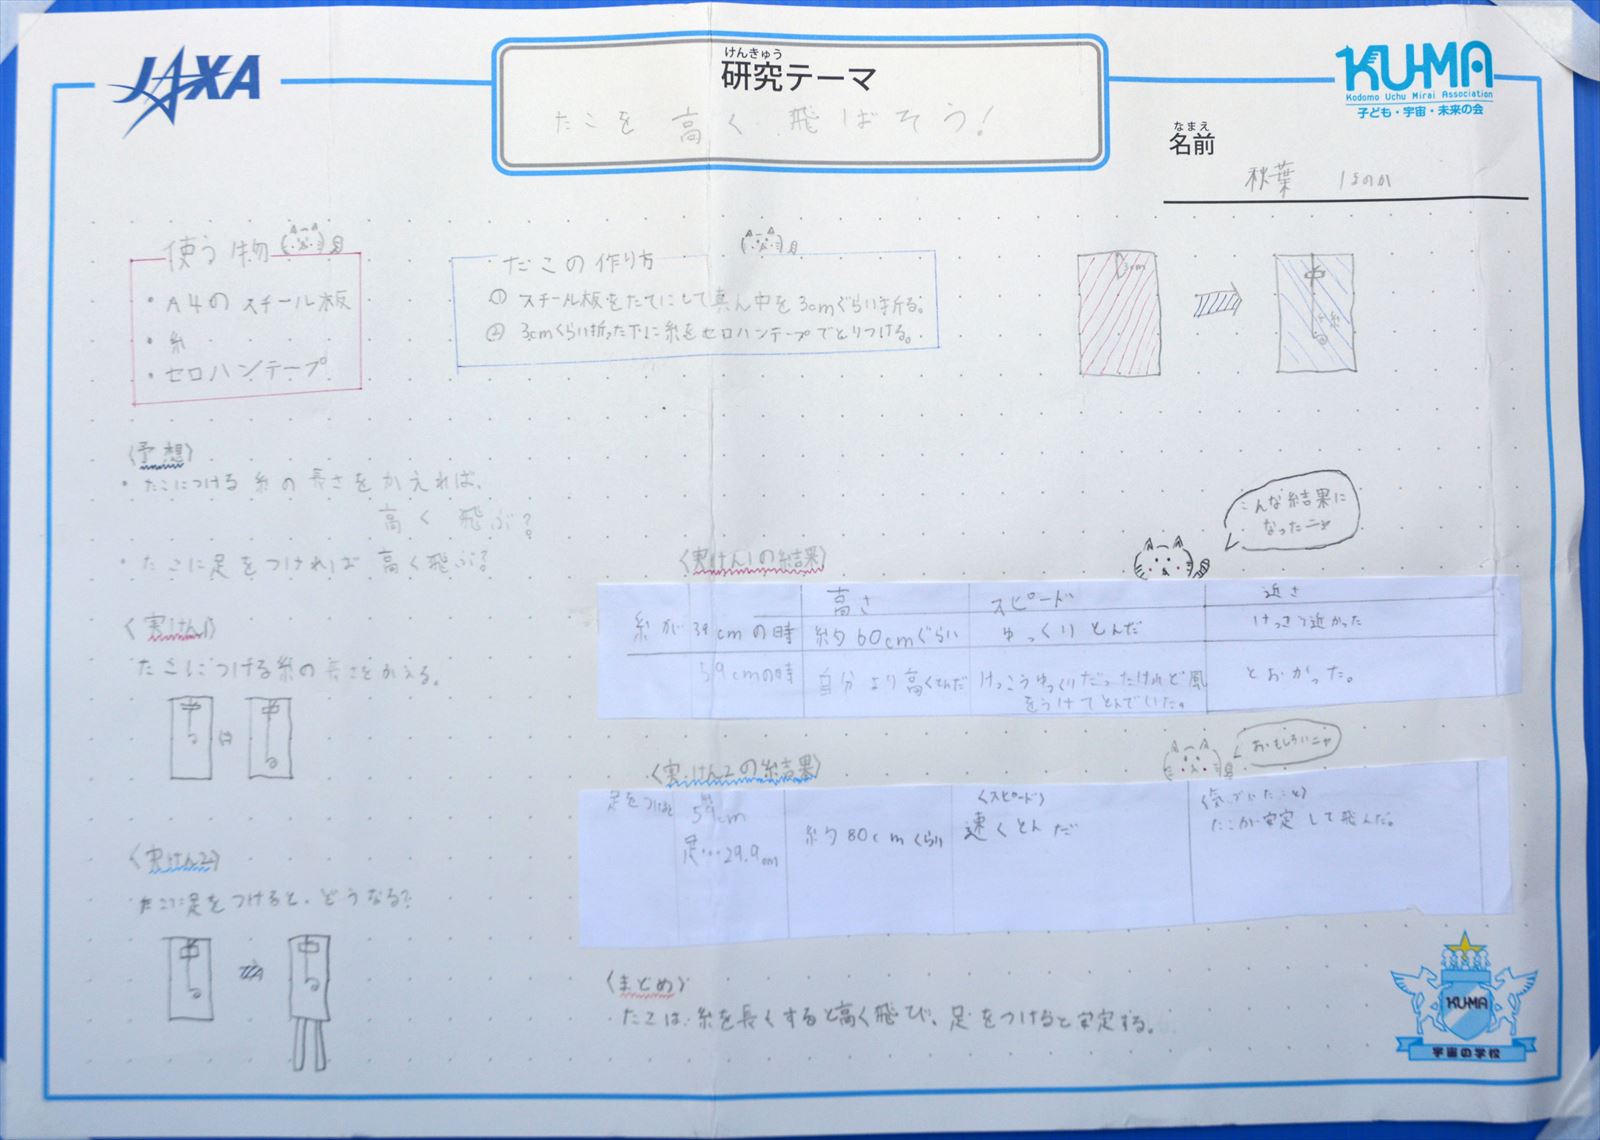 JAXA
けんきゅう
研究テーマ
たこを高く飛ばそう!
KU-MA
Kodomo Uchu Mirai Association
子ども・宇宙・未来の会
なまえ
名前
秋葉 ほのか
使う物
・A4のスチール板
・糸
・セロハンテープ
たこの作り方
① スチール板をたてにして真ん中を3cmぐらい折る。
② 3cmくらい折った下に糸をセロハンテープでとりつける。
3cm
糸
〈予想〉
・たこにつける糸の長さをかえれば、
高く飛ぶ?
・たこに足をつければ高く飛ぶ?
〈実けん1〉
たこにつける糸の長さをかえる。
〈実けん2〉
たこに足をつけると、どうなる?
こんな結果に
なったニャ
〈実けん1の結果〉
高さ スピード 近さ
糸が 39cmの時 約60cmぐらい ゆっくりとんだ けっこう近かった
59cmの時 自分より高くとんだ けっこうゆっくりだったけれど風
をうけてとんでいた。
とおかった。
おもしろいニャ
〈実けん2の結果〉
足をつけると 59cm 約80cmくらい 〈スピード〉 速くとんだ 〈気づいたこと〉
足…29.9cm たこが安定して飛んだ。
〈まとめ〉
たこは、糸を長くすると高く飛び、足をつけると安定する。
KU-MA
宇宙の学校